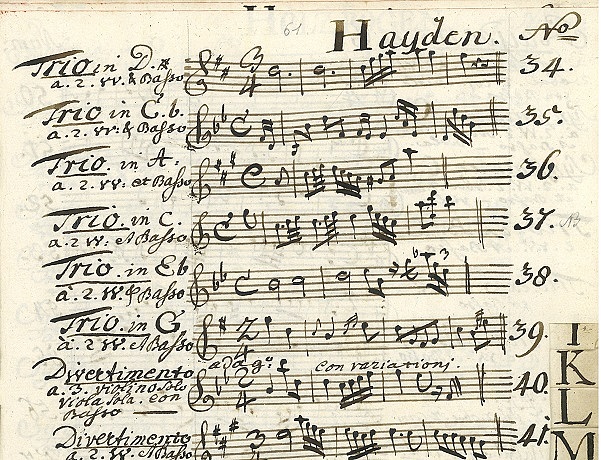 61
Hayden. No
Trio in D.# 3/4 34.
a. 2. VV. & Basso
Trio in E.b. C 35.
a. 2. VV: & Basso
Trio. in A. C 36.
a. 2. VV: et Basso
Trio. in C. C 37. NB
a. 2 VV. et Basso
Trio. in Eb C 38.
a. 2. VV. & Basso
Trio. in G 2/4 39.
a. 2 VV. et Basso
Divertimento adag:º con variationi. 40.
a. 3. violino Solo 2/4
viola Sola. con
Basso
Divertimento 3 41.
a. 2. VV. et Basso
I
K
L
M